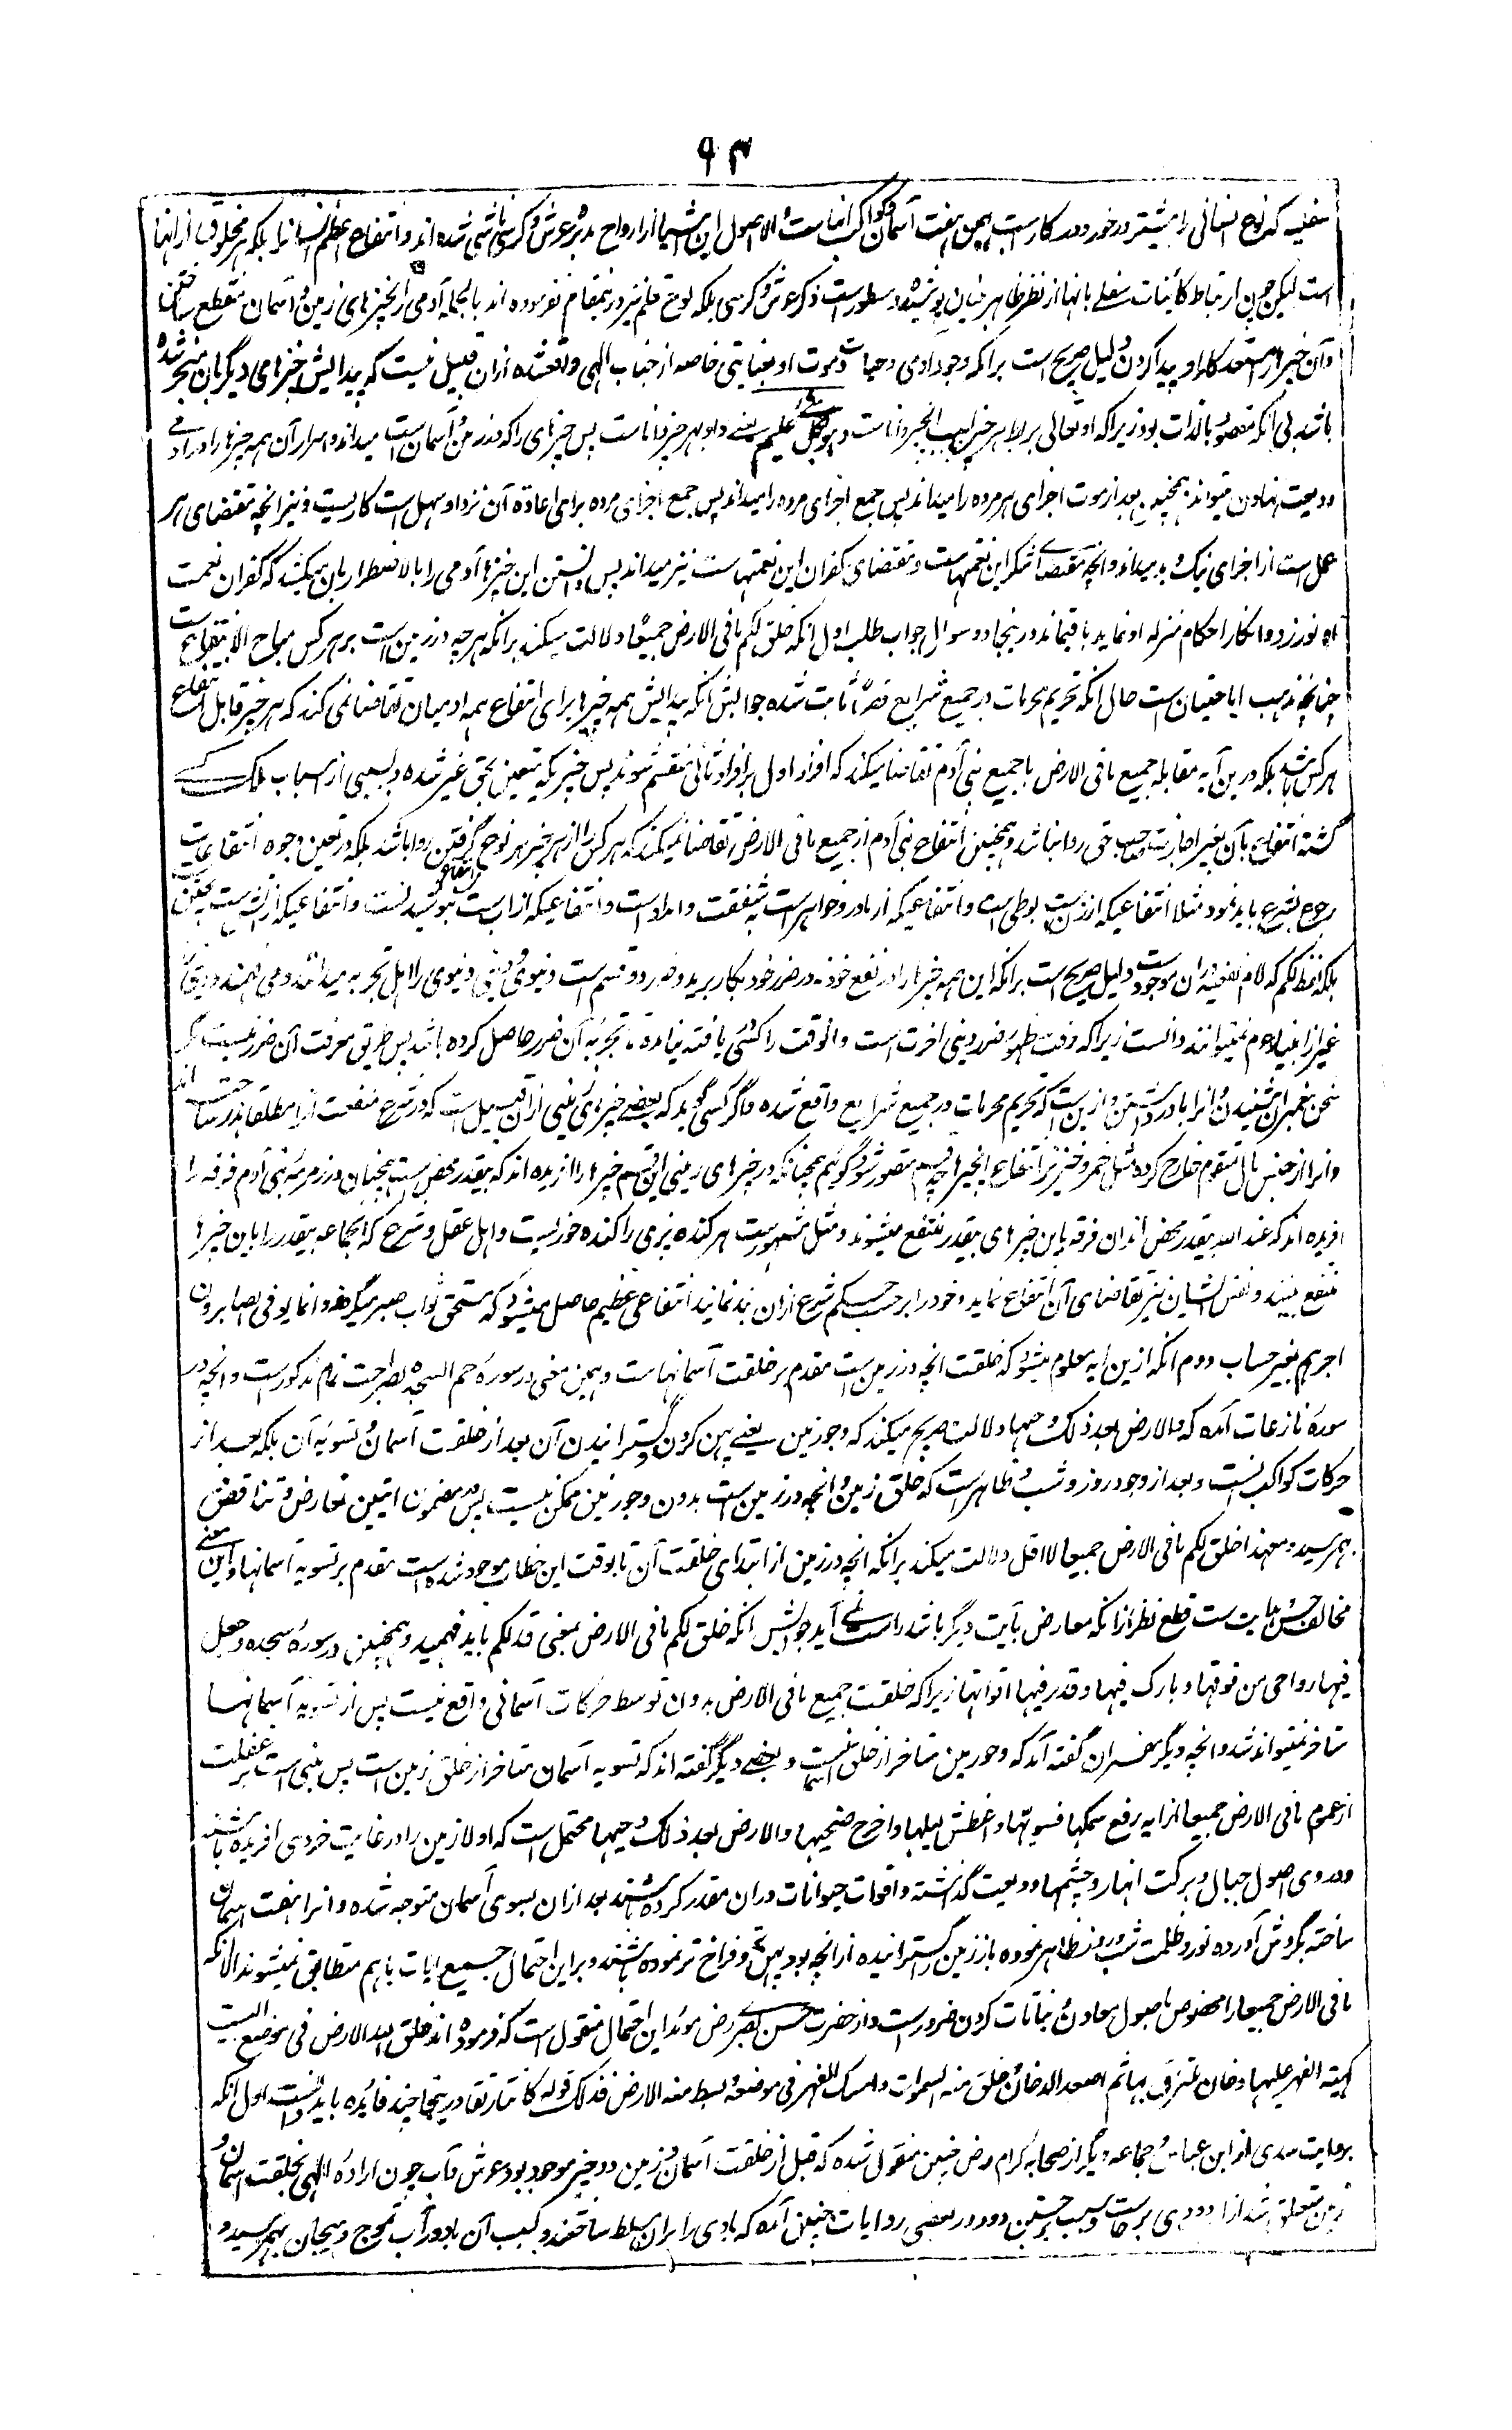 ۹۳
سفلیه که نوع انسانی را بیشتر در خورد و در کار است همین هفت آسمان و کواکب آنهاست و الاصول این اشیا از ارواح مدبره عرش و کرسی ناشی شده اند و انتفاع اعظم انسان را بلکه هر مخلوق از انها
است لیکن چون ارتباط کائنات سفلے بانها از نظر ظاهر بینان پوشیده و مستور است ذکر عرش و کرسی بلکه لوح و قلم نیز درینمقام نفرموده اند بالجمله آدمی را بچیزهای زمین و آسمان منتفع ساختن
و آن چیزها را مستعد کار او پیدا کردن دلیل صریح است بر آنکه وجود آدمی و حیات و موت او بعنایتی خاصه از جناب الهی واقعشده ازان قبیل نیست که پیدایش چیزهای دیگر بآن منجر شده
باشد بی آنکه مقصود بالذات بود زیرا که او تعالی بر ربط هر چیز داناست و هو بکل شئ علیم یعنے و او بهر چیز داناست پس چیزهای را که در زمین و آسمان است میداند و اسرار آن همه چیزها را در آدمے
ودیعت نهادن میتواند همچنین بعد از موت اجزای هر مرده را میداند پس جمع اجزای مرده برای اعاده آن نزد او سهل است کاریست و نیز آنچه مقتضای هر
عمل است از اجزای نیک و بد میداند و آنچه مقتضاے شکر این نعمتهاست و مقتضای کفران این نعمتهاست نیز میداند پس دانستن این چیزها آدمی را بالاضطرار بآن میکشد که کفران نعمت
او نورزد و انکار احکام منزله او ننماید باقیماند درینجا دو سوال جواب طلب اول آنکه خلق لکم ما فی الارض جمیعا دلالت میکند بر آنکه هر چه در زمین است بر هر کس مباح الانتفاع است
چنانچه مذهب اباحتیان است حال آنکه تحریم محرمات در جمیع شرایع ثابت شده جوابش آنکه پیدایش همه چیزها برای انتفاع همه آدمیان تقاضا نمی کند که هر چیز قابل انتفاع
هر کس باشد بلکه درین آیه مقابله جمیع ما فی الارض با جمیع بنی آدم تقاضا میکند که افراد اول بر افراد ثانی منقسم شوند پس چیزیکه متعین بحق غیر شده و بسببی از اسباب ملک کسے
گشته انتفاع بآن بغیر اجازت صاحب حق روا نباشد و همچنین انتفاع بنی آدم از جمیع ما فی الارض تقاضا نمیکند که هر کس را از هر چیز هر نوع انتفاع گرفتن روا باشد بلکه در تعین وجوه انتفاعات
رجوع بشرع باید نمود مثلا انتفاعیکه از زن است بوطی است و انتفاعیکه از مادر و خواهر است به شفقت و امداد است و انتفاعیکه از آب است بنوشیدنست و انتفاعیکه از آتش است بپختن
بلکه لفظ لکم که لام نفعیه دران موجود است دلیل صریح است بر آنکه این همه چیزها را در نفع خود نه در ضرر خود بکار برید و ضرر دو قسم است دنیوی و دینی دنیوی را اهل تجربه میدانند و می فهمند و دینی را
غیر از انبیاء دم نمیتوانند دانست زیرا که وقت ظهور ضرر دینی آخرت است و آنوقت را کسی یافته نیامده تا تجربه آن ضرر حاصل کرده باشد پس طریق معرفت آن ضرر نیست مگر
سخن پیغمبران شنیدن و آنرا باور داشتن و ازین است که تحریم محرمات در جمیع شرایع واقع شده و اگر کسی گوید که بعضے چیزهای زمینی ازان قبیل است که در شرع منفعت آنرا مطلقا هدر ساخته اند
و آنرا از جنس مال متقوم خارج کرده مثل خمر و خنزیر انتفاع باینچیزها چه قسم متصور شود گوئیم همچنانکه در چیزهای زمینی این قسم چیزها را آفریده اند که بیقدر محض است همچنان در زمره بنی آدم فرقه را
آفریده اند که عند الله بیقدر محض اند آن فرقه باین چیزهای بیقدر منتفع میشوند و مثل مشهور است هر گنده پزی را گنده خوریست و اهل عقل و شرع که آنجماعه بیقدر را باین چیزها
منتفع بینند و نفس ایشان نیز تقاضای آن انتفاع نماید و خود را بر حسب حکم شرع ازان بند نمایند انتفاعی عظیم حاصل میشود که مستحق ثواب صبر میگردند و انما یوفی الصابرون
اجرهم بغیر حساب دوم آنکه ازین آیه معلوم میشود که خلقت آنچه در زمین است مقدم بر خلقت آسمانهاست و همین معنی در سوره حم السجده بصراحت تمام مذکور است و آنچه در
سوره نازعات آمده که و الارض بعد ذلک دحیها دلالت صریح میکند که دحو زمین یعنے پهن کردن و گسترانیدن آن بعد از خلقت آسمان و تسویه آن بلکه بعد از
حرکات کواکب است و بعد از وجود روز و شب و ظاهر است که خلق زمین و آنچه در زمین است بدون دحو زمین ممکن نیست پس در مضمون آیتین تعارض و تناقض
بهم رسید و معهذا خلق لکم ما فی الارض جمیعا لا اقل دلالت میکند بر آنکه آنچه در زمین از ابتدای خلقت آن تا بوقت این خطاب موجود شده است مقدم بر تسویه آسمانهاست و این معنے
مخالف حس و بداهت است قطع نظر از آنکه معارض بآیت دیگر باشد راست نمے آید جوابش آنکه خلق لکم ما فی الارض بمعنی قدر لکم باید فهمید و همچنین در سوره سجده و جعل
فیها رواسی من فوقها و بارک فیها و قدر فیها اقواتها زیرا که خلقت جمیع ما فی الارض بدون توسط حرکات آسمانی واقع نیست پس از تسویه آسمانها
متاخر نمیتواند شد و آنچه دیگر مفسران گفته اند که دحو زمین متاخر از خلق آسمان نیست و بعضے دیگر گفته اند که تسویه آسمان متاخر از خلق زمین است پس مبنی است بر غفلت
از عموم ما فی الارض جمیعا از آیه رفع سمکها فسویها و اغطش لیلها و اخرج ضحیها و الارض بعد ذلک دحیها محتمل است که اولا زمین را در غایت خردی آفریده باشند
و در وی اصول جبال و برکت انهار و چشمها ودیعت گذاشته و اقوات حیوانات دران مقدر کرده باشند بعد ازان بسوی آسمان متوجه شده و آنرا هفت آسمان
ساخته بگردش آورده نور و ظلمت شب و روز ظاهر نموده باز زمین را گسترانیده از آنچه بود پهن و فراخ تر نموده باشند و بر این احتمال جمیع آیات باهم متطابق میشوند الا آنکه
ما فی الارض جمیعا را مخصوص باصول معادن و نباتات کردن ضرور است و از حضرت حسن بصرے رض مؤید این احتمال منقول است که فرموده اند خلق الله الارض فی موضع البیت
کهیئة الفهر علیها دخان ملتزق بها ثم اصعد الدخان و خلق منه السموات و امسک الفهر فی موضعه و بسط منه الارض فذلک قوله کانتا رتقا درینجا چند فائده باید دانست اول آنکه
بروایت سدی از ابن عباس و جماعه دیگر از صحابه کرام رض چنین منقول شده که قبل از خلقت آسمان و زمین دو چیز موجود بود عرش و آب چون اراده الهی بخلقت آسمان و
زمین متعلق شد از آب دودی برخاست و سبب برخاستن دود در بعضی روایات چنین آمده که بادی را بران مسلط ساختند و بسبب آن باد در آب تموج و هیجان بهم رسید و